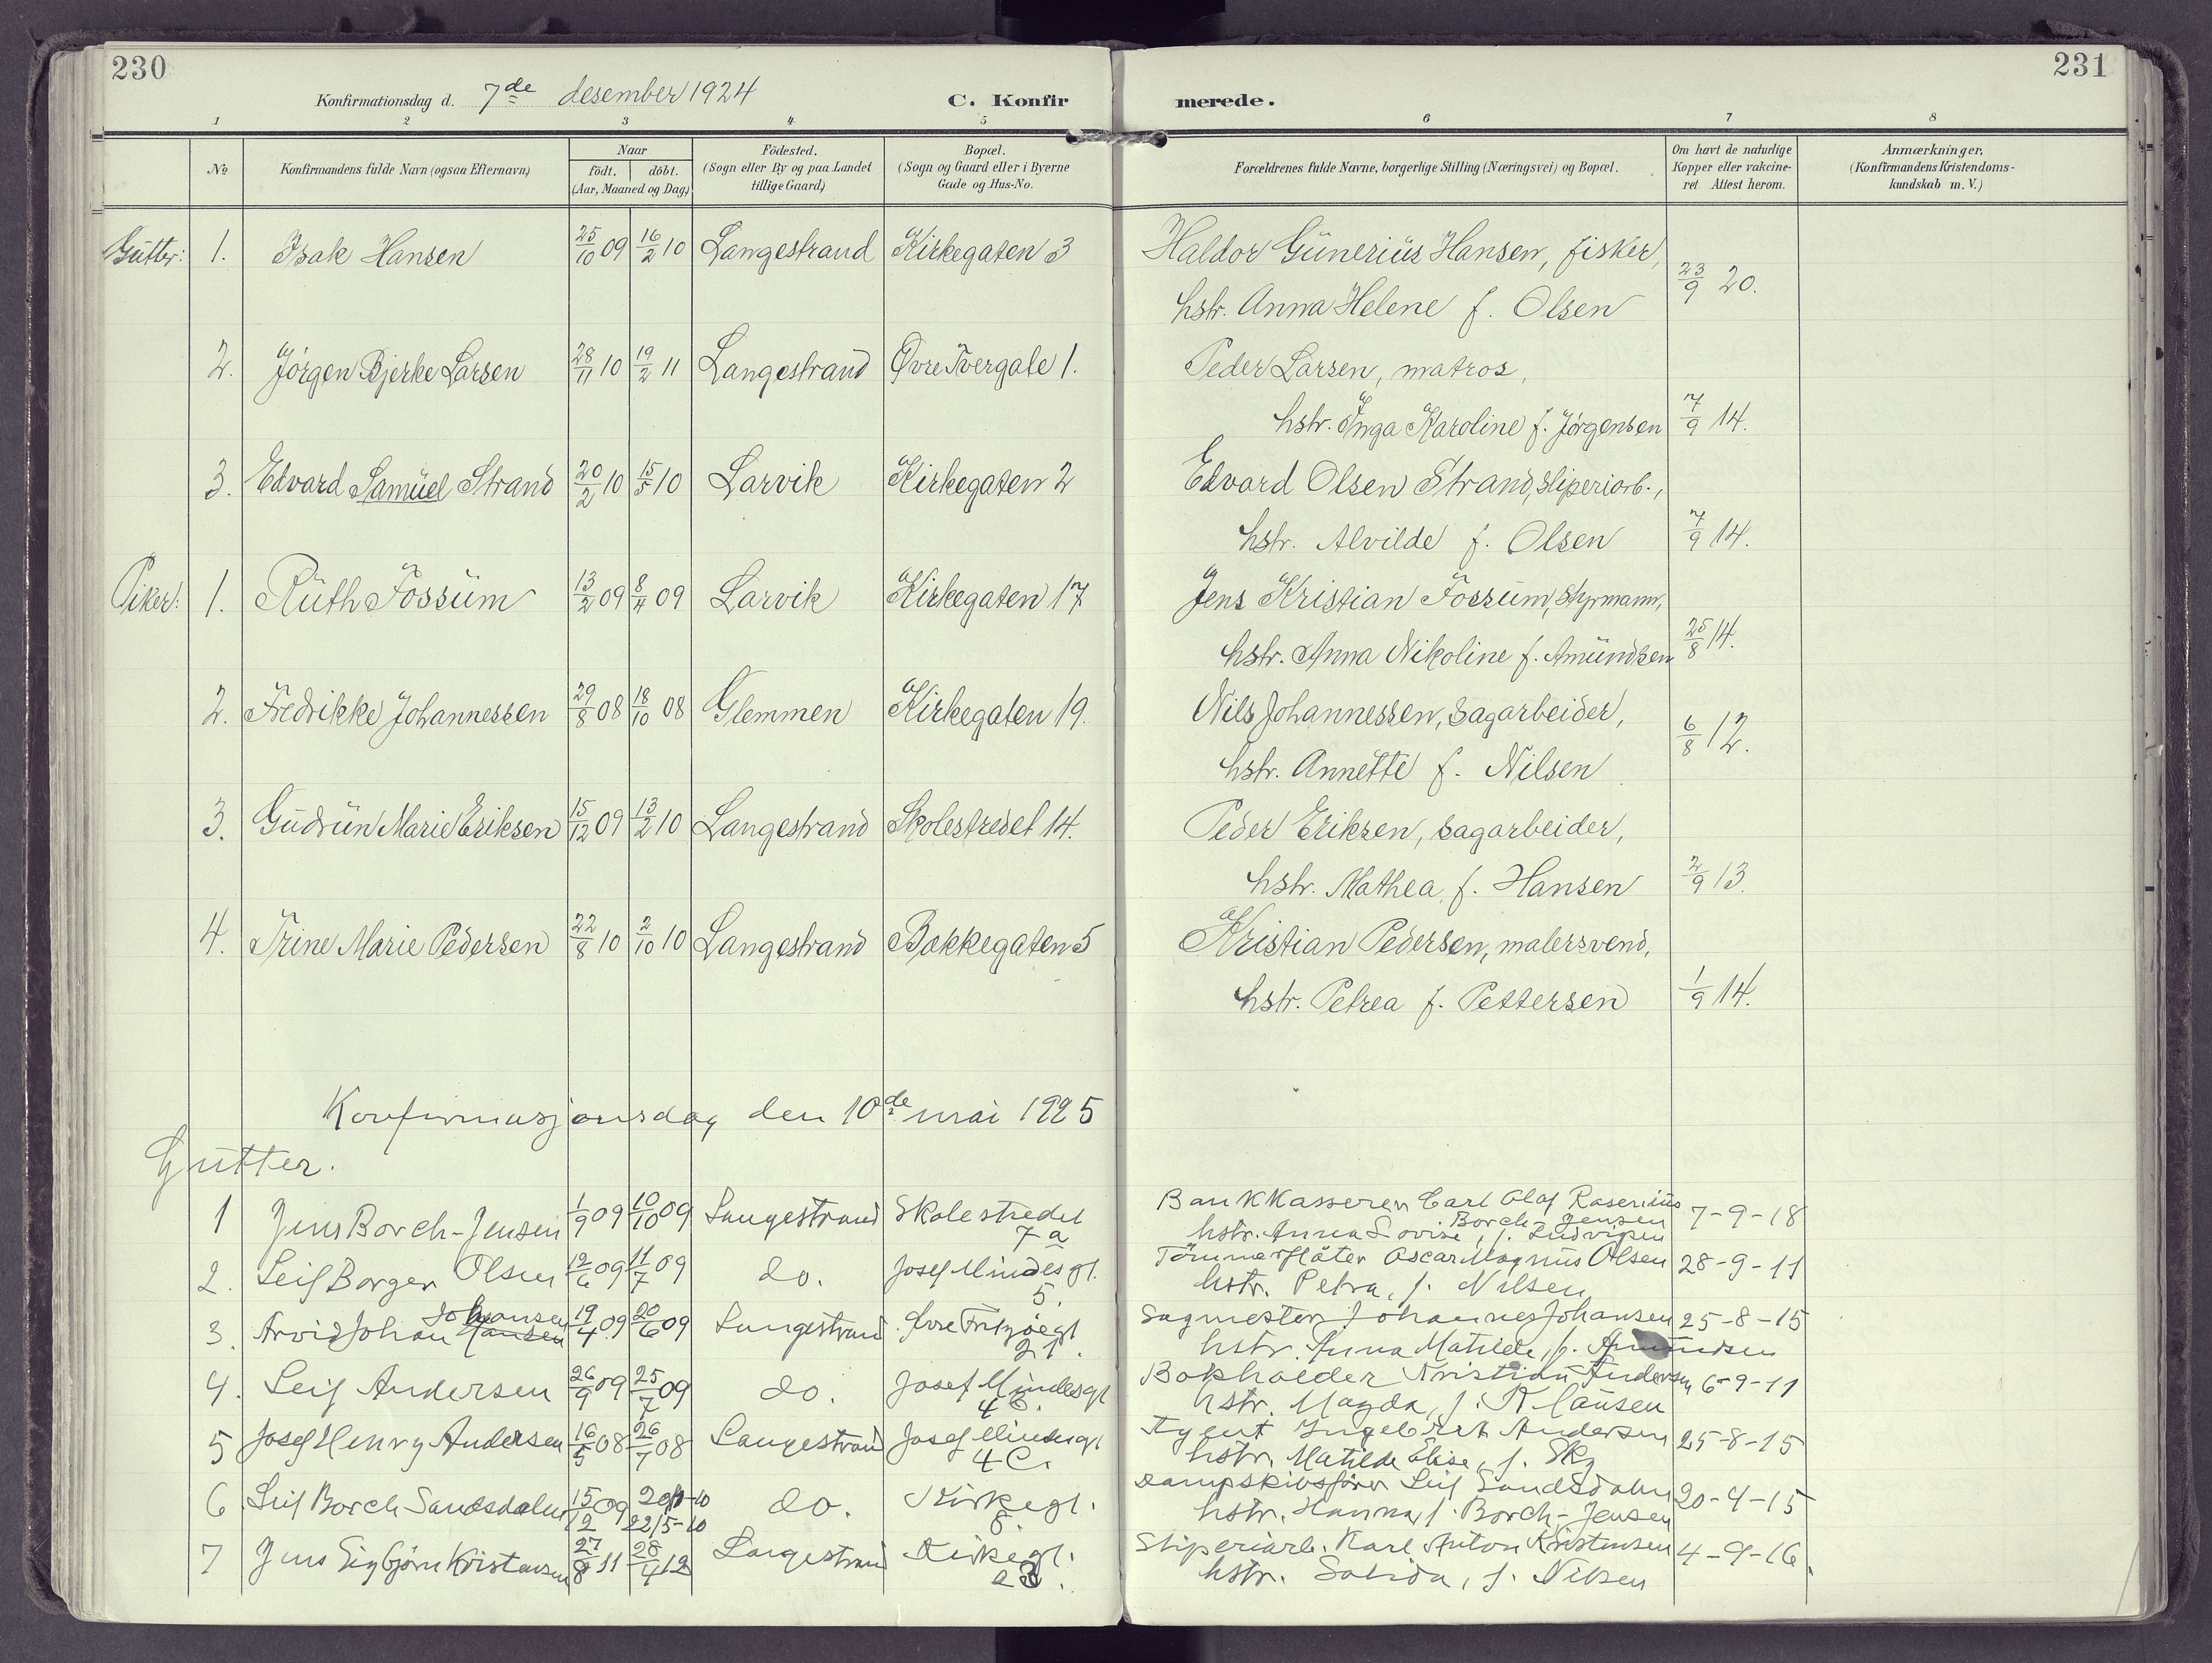 230
231
Konfirmationsdag d. 7de desember 1924
C. Konfir merede.
1 2 3 4 5 6 7 8
No
Konfirmandens fulde Navn (ogsaa Efternavn)
Naar
født. døbt.
(Aar, Maaned og Dag)
Fødested.
(Sogn eller By og paa Landet
tillige Gaard)
Bopæl.
(Sogn og Gaard eller i Byerne
Gade og Hus-No.
Forældrenes fulde Navne, borgerlige Stilling (Næringsvei) og Bopæl.
Om havt de naturlige
Kopper eller vakcine-
ret Attest herom.
Anmærkninger,
(Konfirmandens Kristendoms-
kundskab m. V.)
Gutter: 1. Isak Hansen 25/10 09 16/2 10 Langestrand Kirkegaten 3 Haldor Günerius Hansen, fisker,
hstr. Anna Helene f. Olsen 23/9 20.
2. Jørgen Bjerke Larsen 28/11 10 19/2 11 Langestrand Øvre Tvergate 1. Peder Larsen, matros,
hstr. Inga Karoline f. Jørgensen 7/9 14.
3. Edvard Samüel Strand 20/2 10 15/5 10 Larvik Kirkegaten 2 Edvard Olsen Strand, Sliperiarb.,
hstr. Alvilde f. Olsen 7/9 14.
Piker: 1. Rüth Fossüm 13/2 09 8/4 09 Larvik Kirkegaten 17 Jens Kristian Fossüm, Styrmann,
hstr. Anna Nikoline f. Amündsen 25/8 14.
2. Fredrikke Johannessen 29/8 08 18/10 08 Glemmen Kirkegaten 19. Nils Johannessen, sagarbeider,
hstr. Annette f. Nilsen 6/8 12.
3. Güdrün Marie Eriksen 15/12 09 13/2 10 Langestrand Skolestredet 14. Peder Eriksen, sagarbeider,
hstr. Mathea f. Hansen 2/9 13.
4. Trine Marie Pedersen 22/8 10 2/10 10 Langestrand Bakkegaten 5 Kristian Pedersen, malersvend,
hstr. Petrea f. Pettersen 1/9 14.
Konfirmasjonsdag den 10de mai 1925
Gutter.
1 Jens Borch-Jensen 1/9 09 10/10 09 Langestrand Skolestredet 7a Bankkasserer Carl Olaf Rasenius
Borch-Jensen
hstr. Anna Lovise, f. Ludvigsen 7-9-18
2. Leif Borger Olsen 12/6 09 11/7 09 do. Josef Mindes gt. 5. Tømmerfløter Oscar Magnus Olsen
hstr. Petra, f. Nilsen 28-9-11
3. Arvid Johan Hansen Johansen 19/4 09 20/6 09 Langestrand Øvre Fritzøegt 21. Sagmester Johannes Johansen
hstr. Anna Matilde, f. Amundsen 25-8-15
4. Leif Andersen 26/9 09 25/7 09 do. Josef Mindesgt 4 C. Bokholder Kristian Andersen
hstr. Magda, f. Klausen 6-9-11
5 Josef Henry Andersen 16/5 08 26/7 08 Langestrand Josef Mindesgt 4 C. Agent Ingebret Andersen
hstr. Matilde Elise, f. Sky 25-8-15
6 Leif Borch Sandsdalen 15/12 09 22/5-10 do. Kirkegt. 8. Dampskibsfører Leif Sandsdalen
hstr. Hanna f. Borch-Jensen 20-4-15
7 Jens Sigbjørn Kristensen 27/8 11 28/4 12 Langestrand Kirkegt. Sliperiarb. Karl Anton Kristensen
hstr. f. Nilsen 4-9-16.